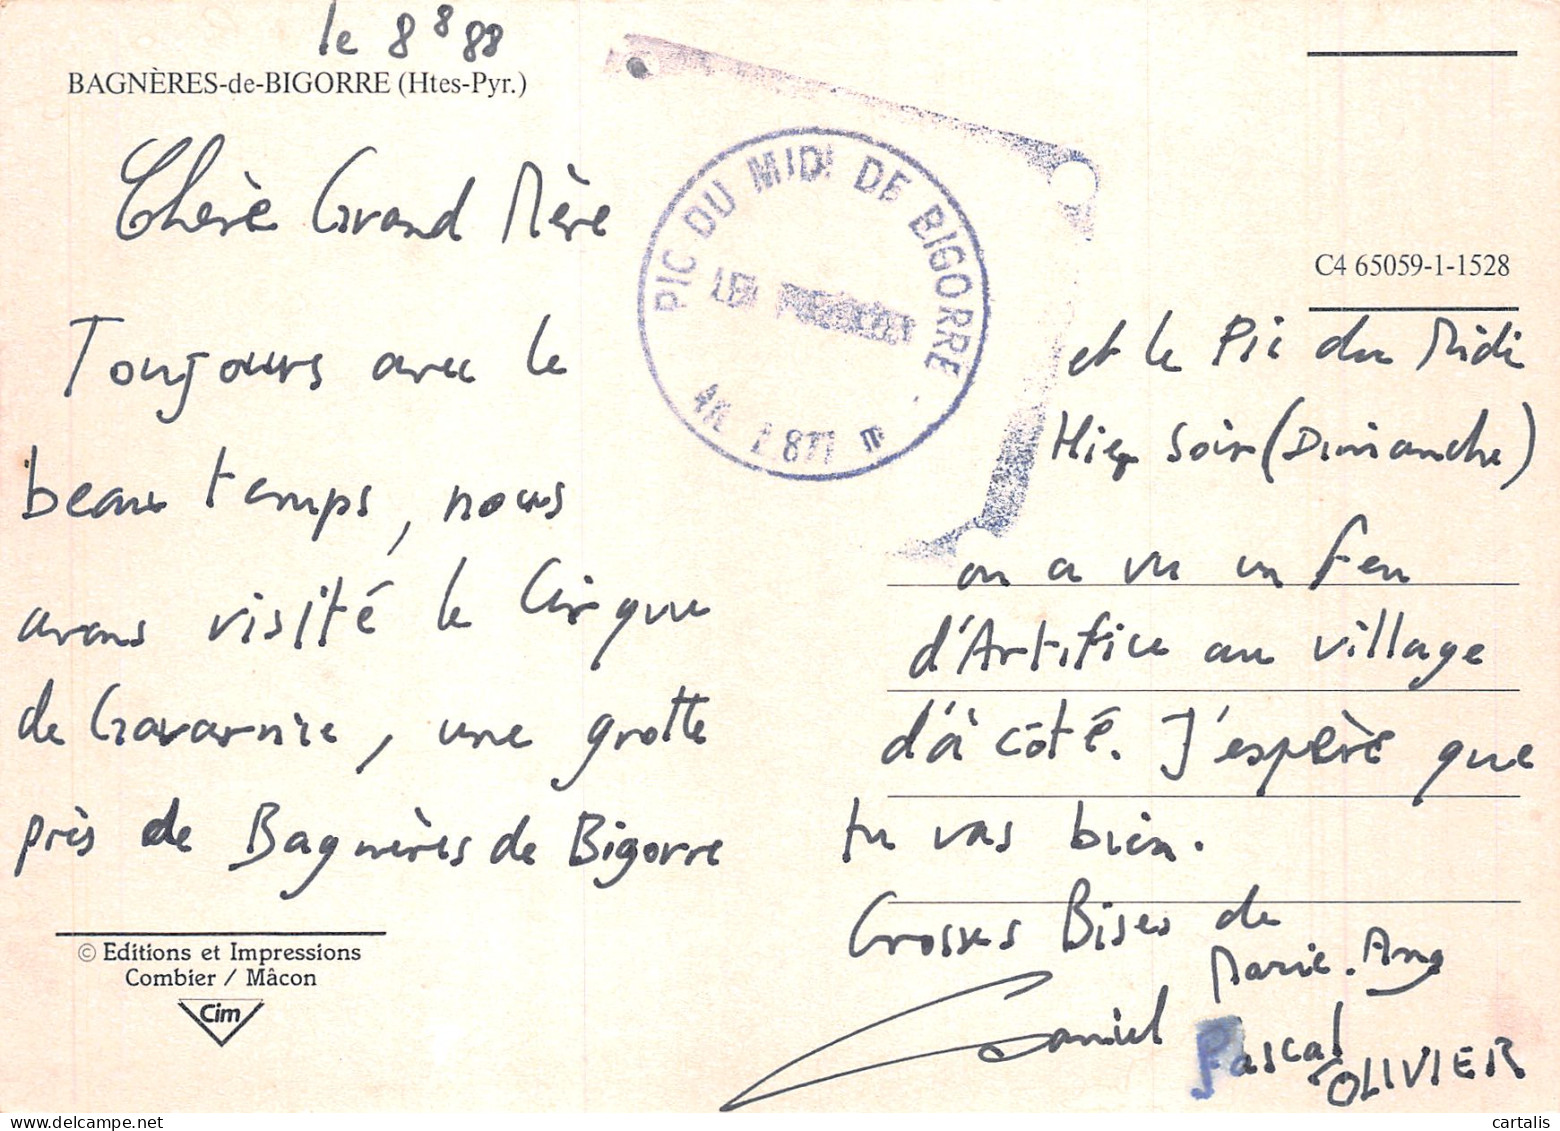 le 8 8 88
BAGNÈRES-de-BIGORRE (Htes-Pyr.)
Chère Grand Mère
Toujours avec le
beau temps, nous
avons visité le Cirque
de Gavarnie, une grotte
près de Bagnères de Bigorre
© Editions et Impressions
Combier / Mâcon
Cim
PIC DU MIDI DE BIGORRE
Alt. 2877 m
C4 65059-1-1528
et le Pic du Midi
Hier Soir (Dimanche)
on a vu un feu
d'Artifice au village
d'à côté. J'espère que
tu vas bien.
Grosses Bises de
Marie. Ang
Daniel
Pascal
OLIVIER
cartalis
www.delcampe.net